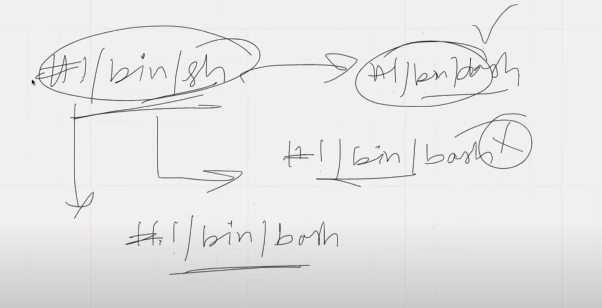 #!/bin/sh
#!/bin/dash
#!/bin/bash
#!/bin/bash